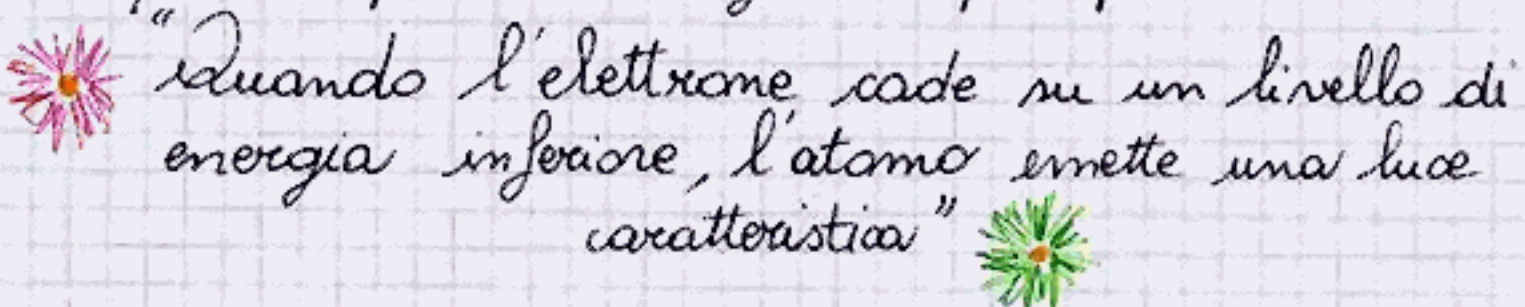 "Quando l'elettrone cade su un livello di
energia inferiore, l'atomo emette una luce
caratteristica"